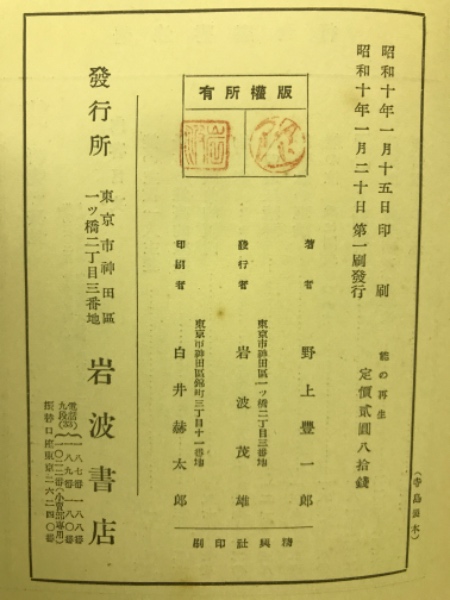 昭和十年一月十五日印刷
昭和十年一月二十日第一刷發行
能の再生
定價貳圓八拾錢
(寺島製本)
版權所有
著者 野上豐一郎
東京市神田區一ッ橋二丁目三番地
發行者 岩波茂雄
東京市神田區錦町三丁目十一番地
印刷者 白井赫太郎
精興社印刷
發行所
東京市神田區
一ッ橋二丁目三番地
岩波書店
電話
九段(33)
一八七番 一八八番
一八九番 一八〇番
一〇二二番(小賣部專用)
振替口座東京二六二四〇番